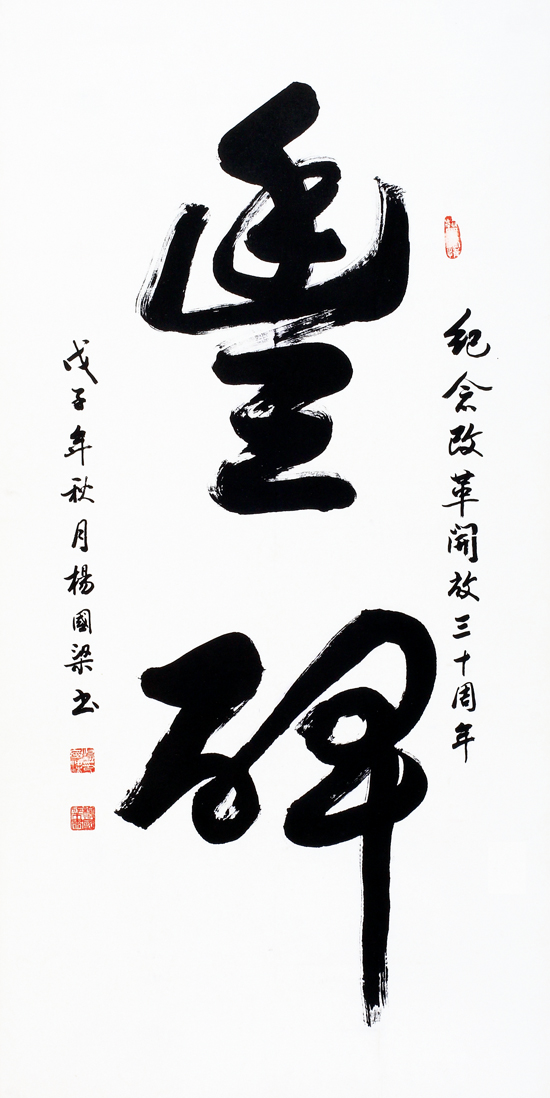 紀念改革開放三十周年
豐碑
戊子年秋月楊國梁书